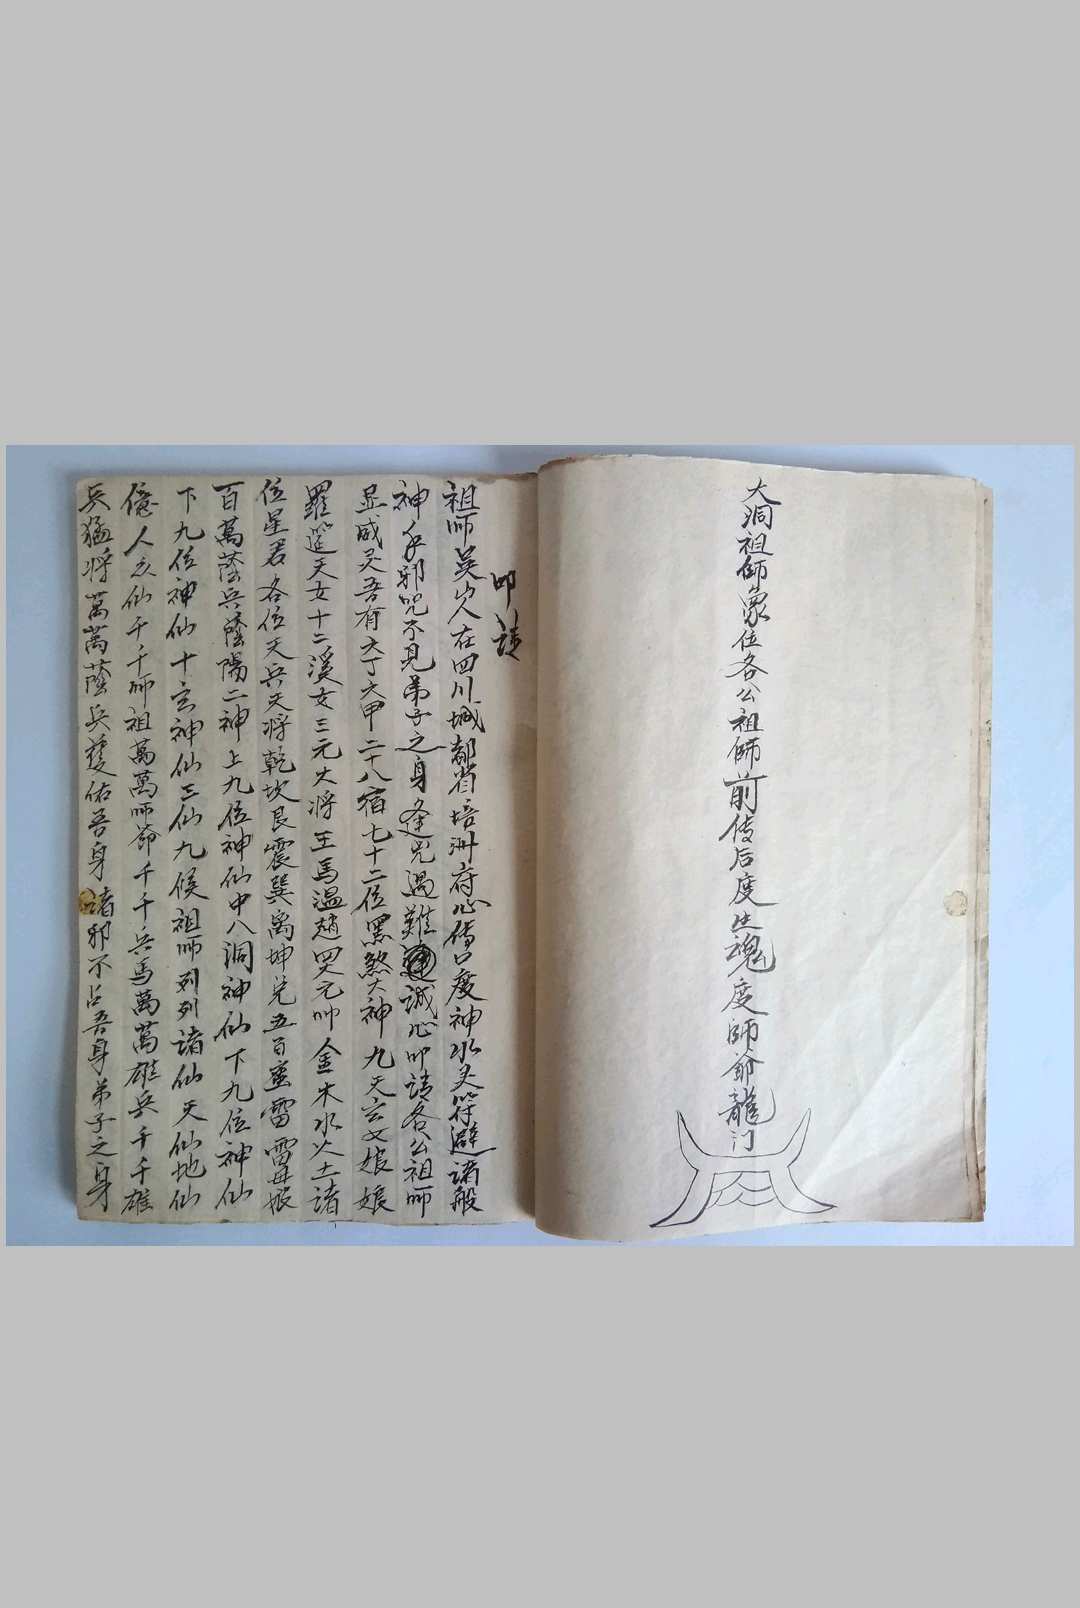 大洞祖師象位各公祖師前传后度生魂度師爺龍门
叩請
祖师吴山人在四川城都省培洲府心傳口度神水灵符避諸般
神鬼邪咒不見弟子之身逢兇過難誠心叩請各公祖师
显威灵吾有六丁六甲二十八宿七十二位黑煞大神九天玄女娘娘
羅筵天女十二溪女三元大将王馬温趙四大元帅金木水火土諸
位星君各位天兵天将乾坎艮震巽离坤兑五百蛮雷雷母娘
百萬蔭兵蔭陽二神上九位神仙中八洞神仙下九位神仙
下九位神仙十玄神仙三仙九候祖师列列諸仙天仙地仙
億人之仙千千师祖萬萬师爺千千兵馬萬萬雄兵千千雄
兵猛将萬萬蔭兵護佑吾身諸邪不占吾身弟子之身